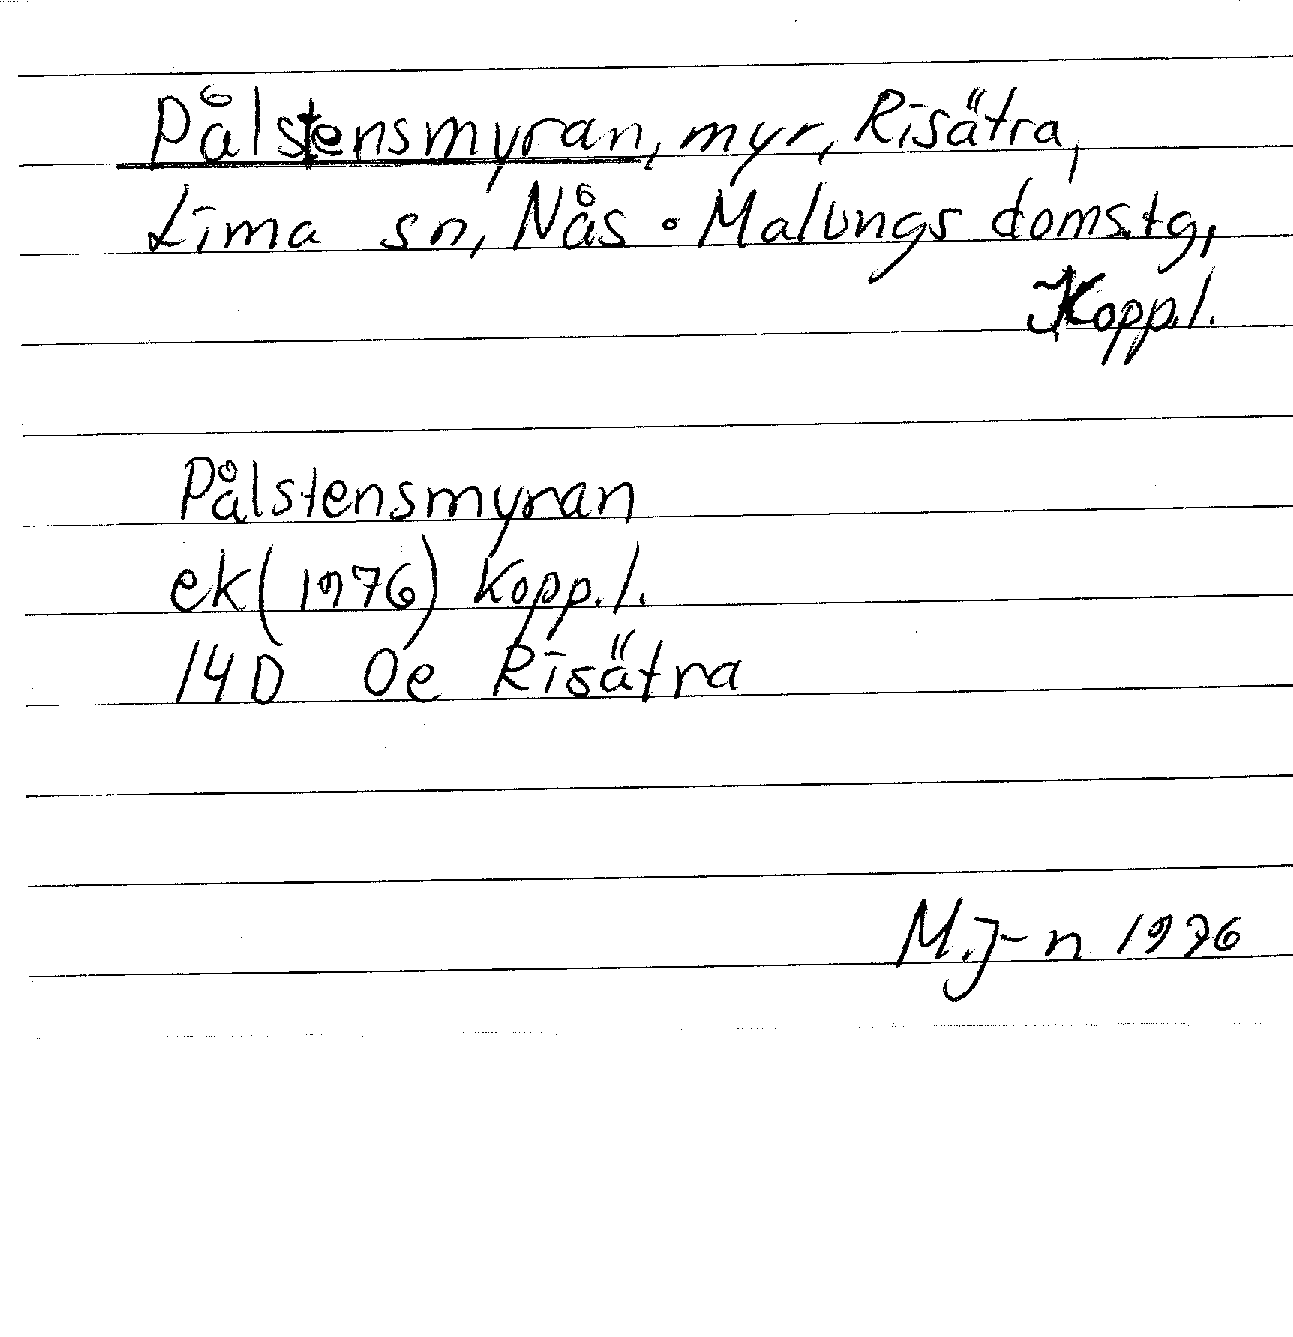 Pålstensmyran, myr, Risätra,
Lima sn, Nås • Malungs doms.tg,
Kopp.l.
Pålstensmyran
ek (1976) Kopp.l.
14D 0e Risätra
M.J-n 1976